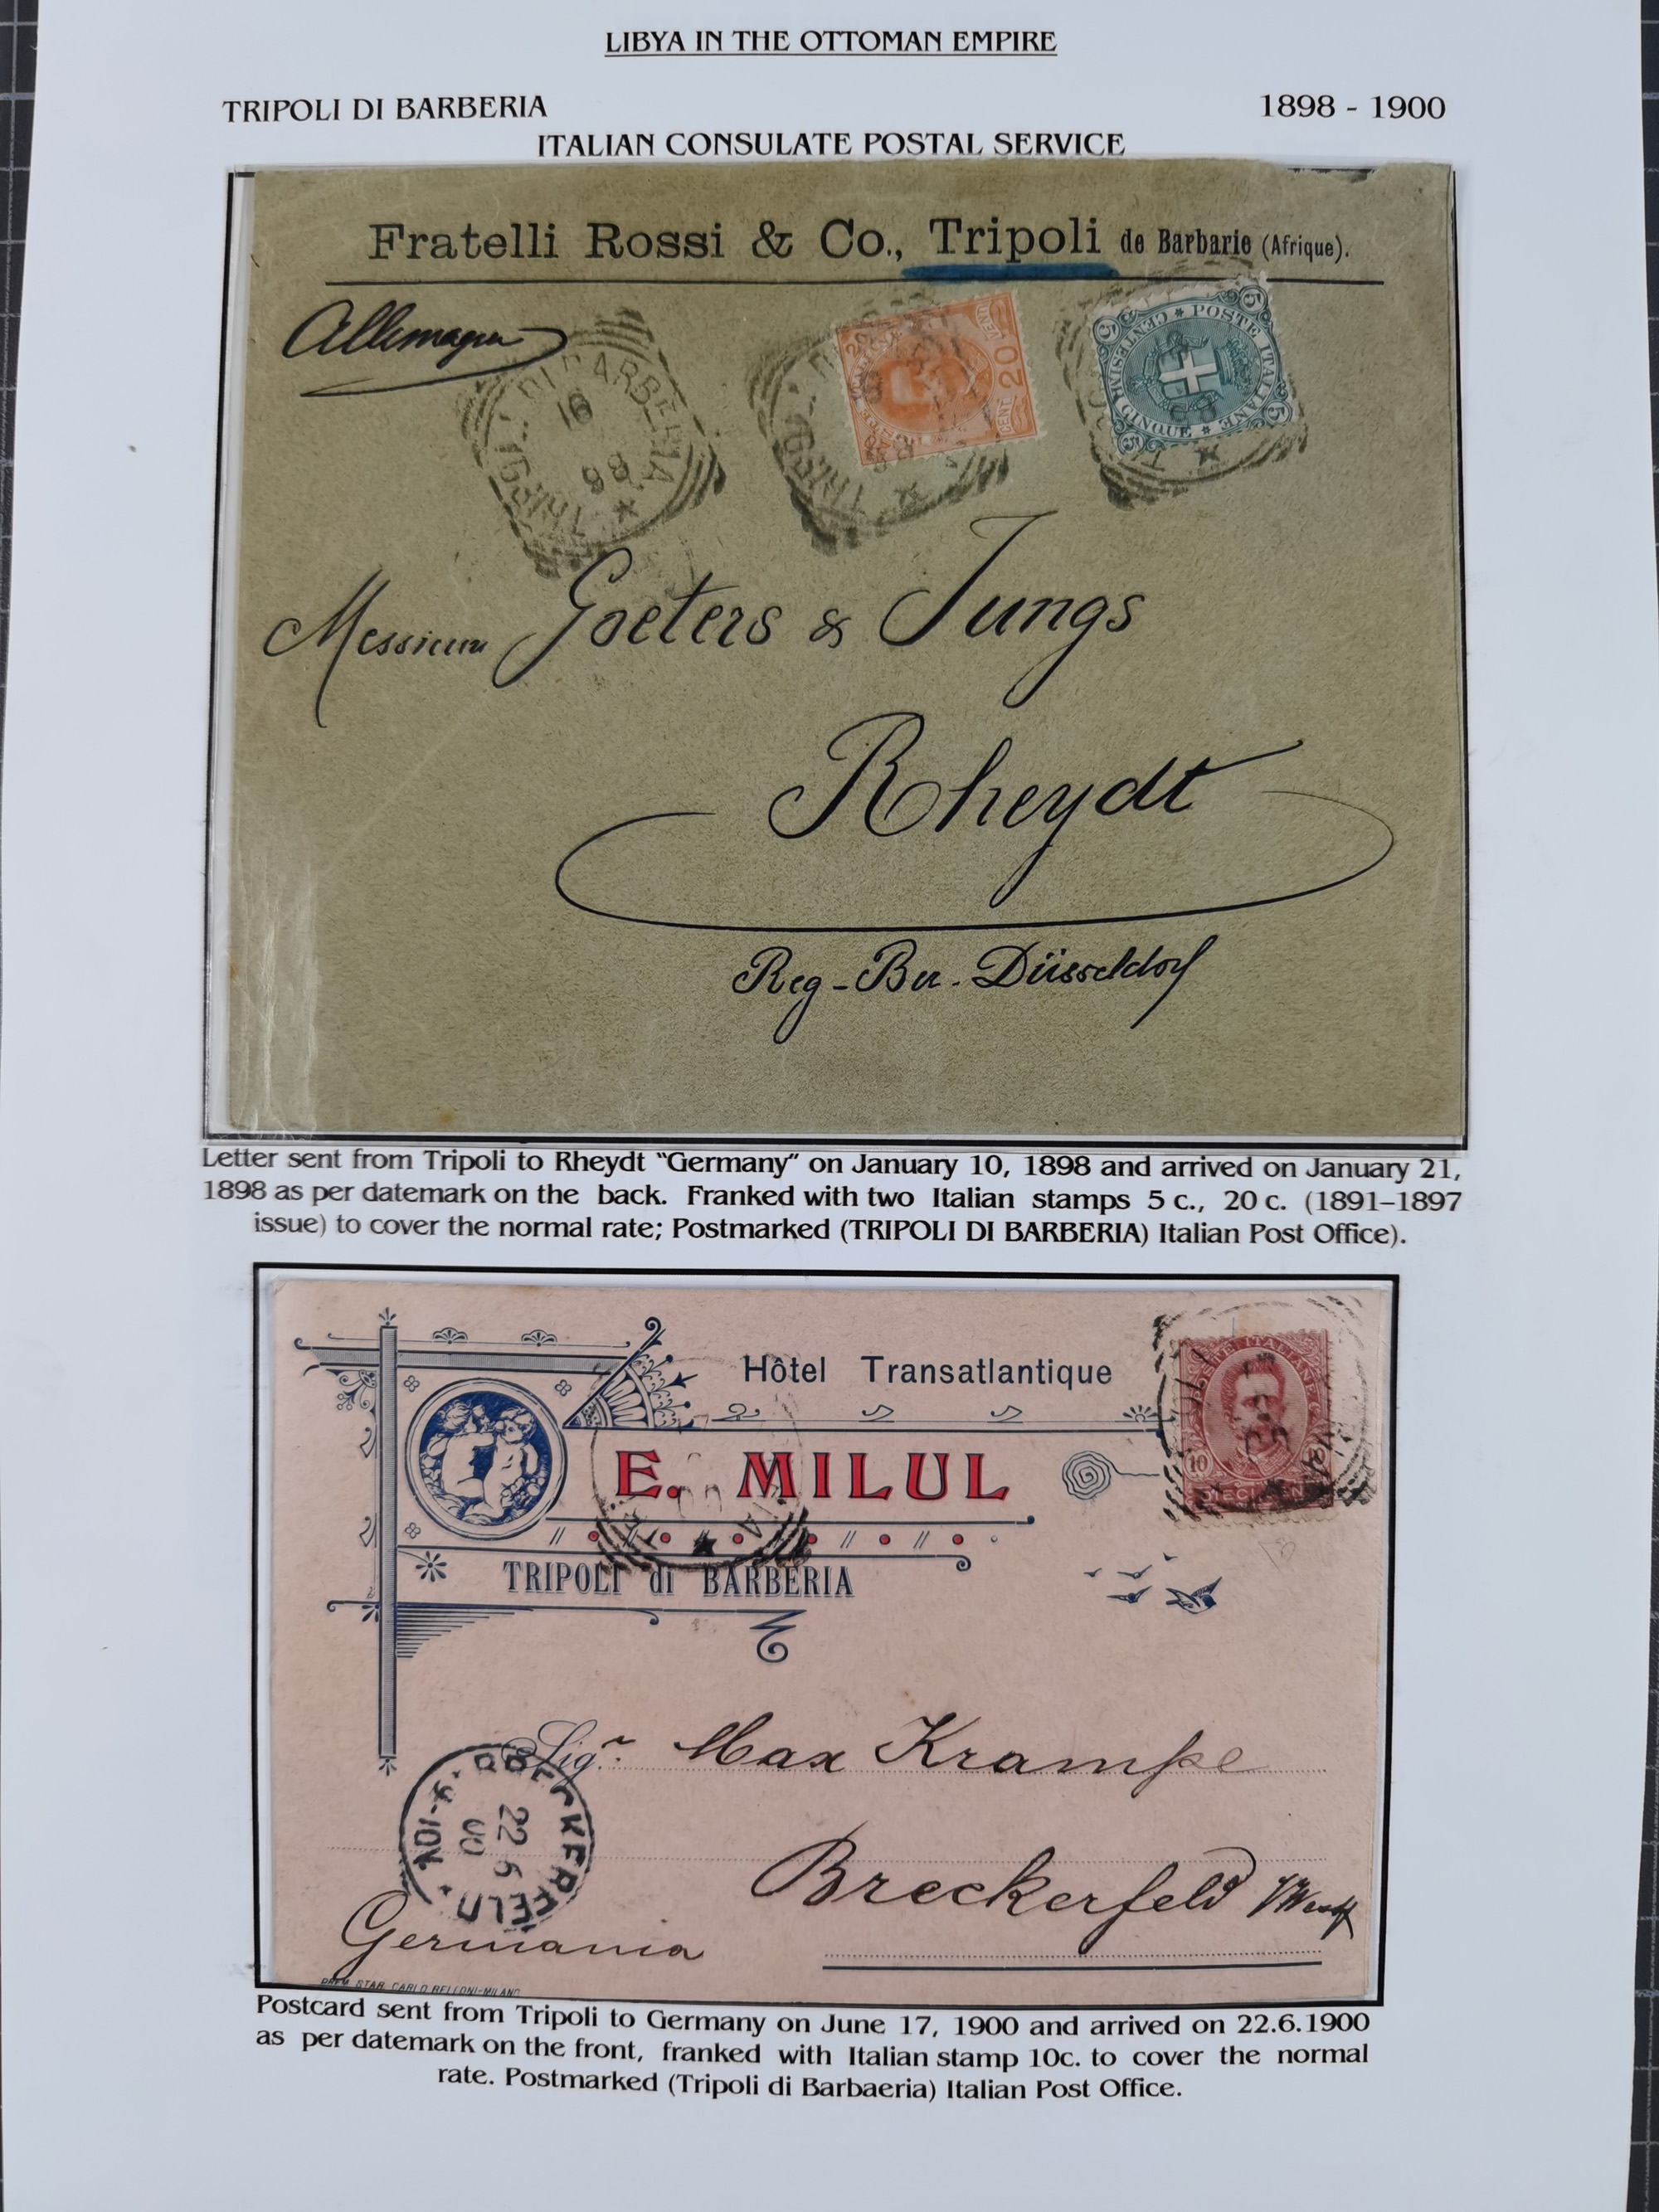 LIBYA IN THE OTTOMAN EMPIRE
TRIPOLI DI BARBERIA
1898 - 1900
ITALIAN CONSULATE POSTAL SERVICE
Fratelli Rossi & Co., Tripoli de Barbarie (Afrique).
Allemagne
DI BARBERIA
98
20
CENT. 20
POSTE ITALIANE
CENTESIMI CINQUE
5
5
5
5
Messieurs Goeters & Jungs
Rheydt
Reg-Bez. Düsseldorf
Letter sent from Tripoli to Rheydt "Germany" on January 10, 1898 and arrived on January 21,
1898 as per datemark on the back. Franked with two Italian stamps 5 c., 20 c. (1891–1897
issue) to cover the normal rate; Postmarked (TRIPOLI DI BARBERIA) Italian Post Office).
Hôtel Transatlantique
E. MILUL
TRIPOLI di BARBERIA
POSTE ITALIANE
10
Sigr. Max Krampe
BRECKERFELD
22 6
00
Breckerfeld
Germania
PREM. STAB. CARLO BELLONI-MILANO
Postcard sent from Tripoli to Germany on June 17, 1900 and arrived on 22.6.1900
as per datemark on the front, franked with Italian stamp 10c. to cover the normal
rate. Postmarked (Tripoli di Barbaeria) Italian Post Office.